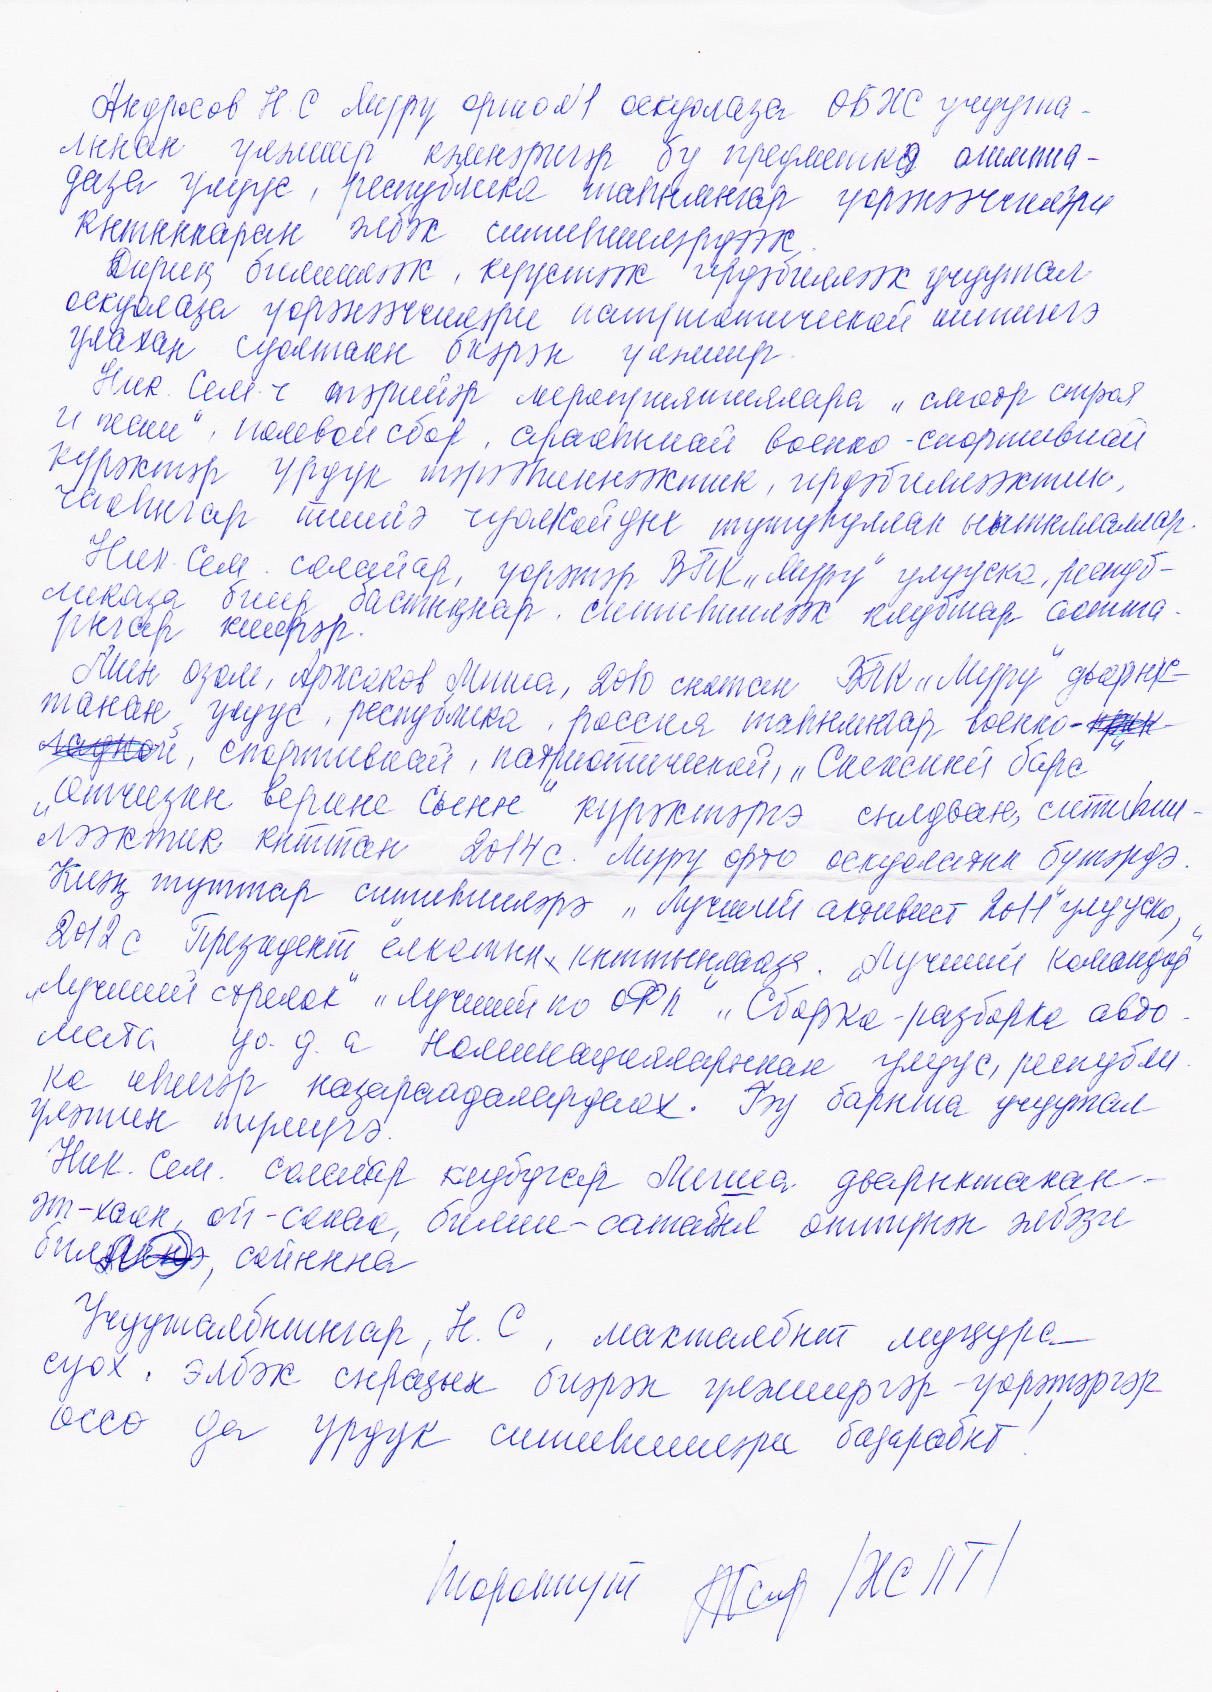 Андросов Н. С Мүрү орто №1 оскуолаҕа ОБЖС учуута-
лынан үлэлиир кэмнэригэр бу предмекка олимпиа-
даҕа улуус, республика таһымнгар үөрэнээччилэри
кыттыыаран элбэх ситиһиилэрдээх.
Дириҥ билиилээх, күүстээх ирдэбиллээх учуутал
оскуолаҕа үөрэнээччилэри патриотической иитиигэ
улахан суолтаан биэрэн үлэлиир.
Ник. Сем-ч тэрийэр мероприятиялара „смотр строя
и песни", полевой сбор, араасннай военно-спортивнай
күрэхтэр үрдүк тэрээһиннээхтик, ирдэбиллээхтик,
чаһыгар тиийэ чуолкайдык тутуһуллан ыытыллаллар.
Ник. Сем. салайар, үөрэтэр ВПК „Мүрү" улууска, респуб-
ликаҕа биир бастыҥнар, ситиһиилээх клубтар ахсаа-
ныгар киирэр.
Мин оҕом, Аржаков Миша, 2010 сылтан ВПК „Мүрү" дьарык-
танан, улуус, республика, россия таһымнгар военно-
спортивнай, патриотическай, „Снежный барс"
„Отчизны верные сыны" күрэхтэргэ сылдьан, ситиһии-
лээхтик кыттан 2014 с. Мүрү орто оскуолатын бүтэрдэ.
Киэҥ туттар ситиһиилэрэ „Лучший активист 2011" улууска,
2012 с Президент ёлкатын кыттыылааҕа. „Лучший командир"
„Лучший стрелок" „Лучший по ОФП" „Сборка-разборка авто-
мата уо. д. а номинацияларынан улуус, республи-
ка иһигэр наҕараадалардаах. Бу барыта учуутал
үлэтин түмүгэ.
Ник. Сем. салайар клубугар Миша дьарыктанан-
эт-хаан, өй-санаа, билии-сатабыл өттүнэн элбэҕи
билэн, сайынна
Учууталбытыгар, Н. С, махталбыт муҥура
суох. Элбэх сыраҕын биэрэн үлэлииргэр-үөрэтэргэр
өссө да үрдүк ситиһиилэри баҕарабыт!
/төрөппүт /ЖСПТ/